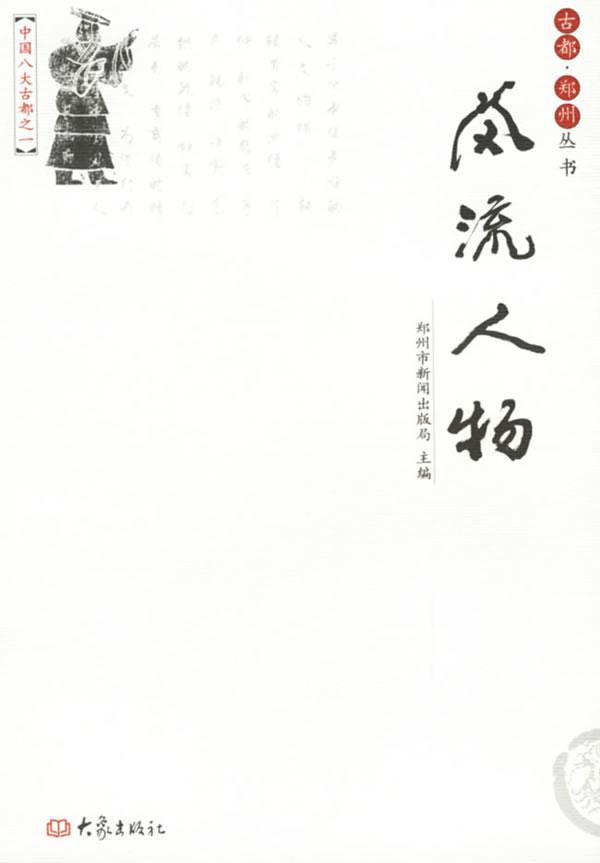 古都·郑州丛书
风流人物
郑州市新闻出版局 主编
【中国八大古都之一】
大象出版社